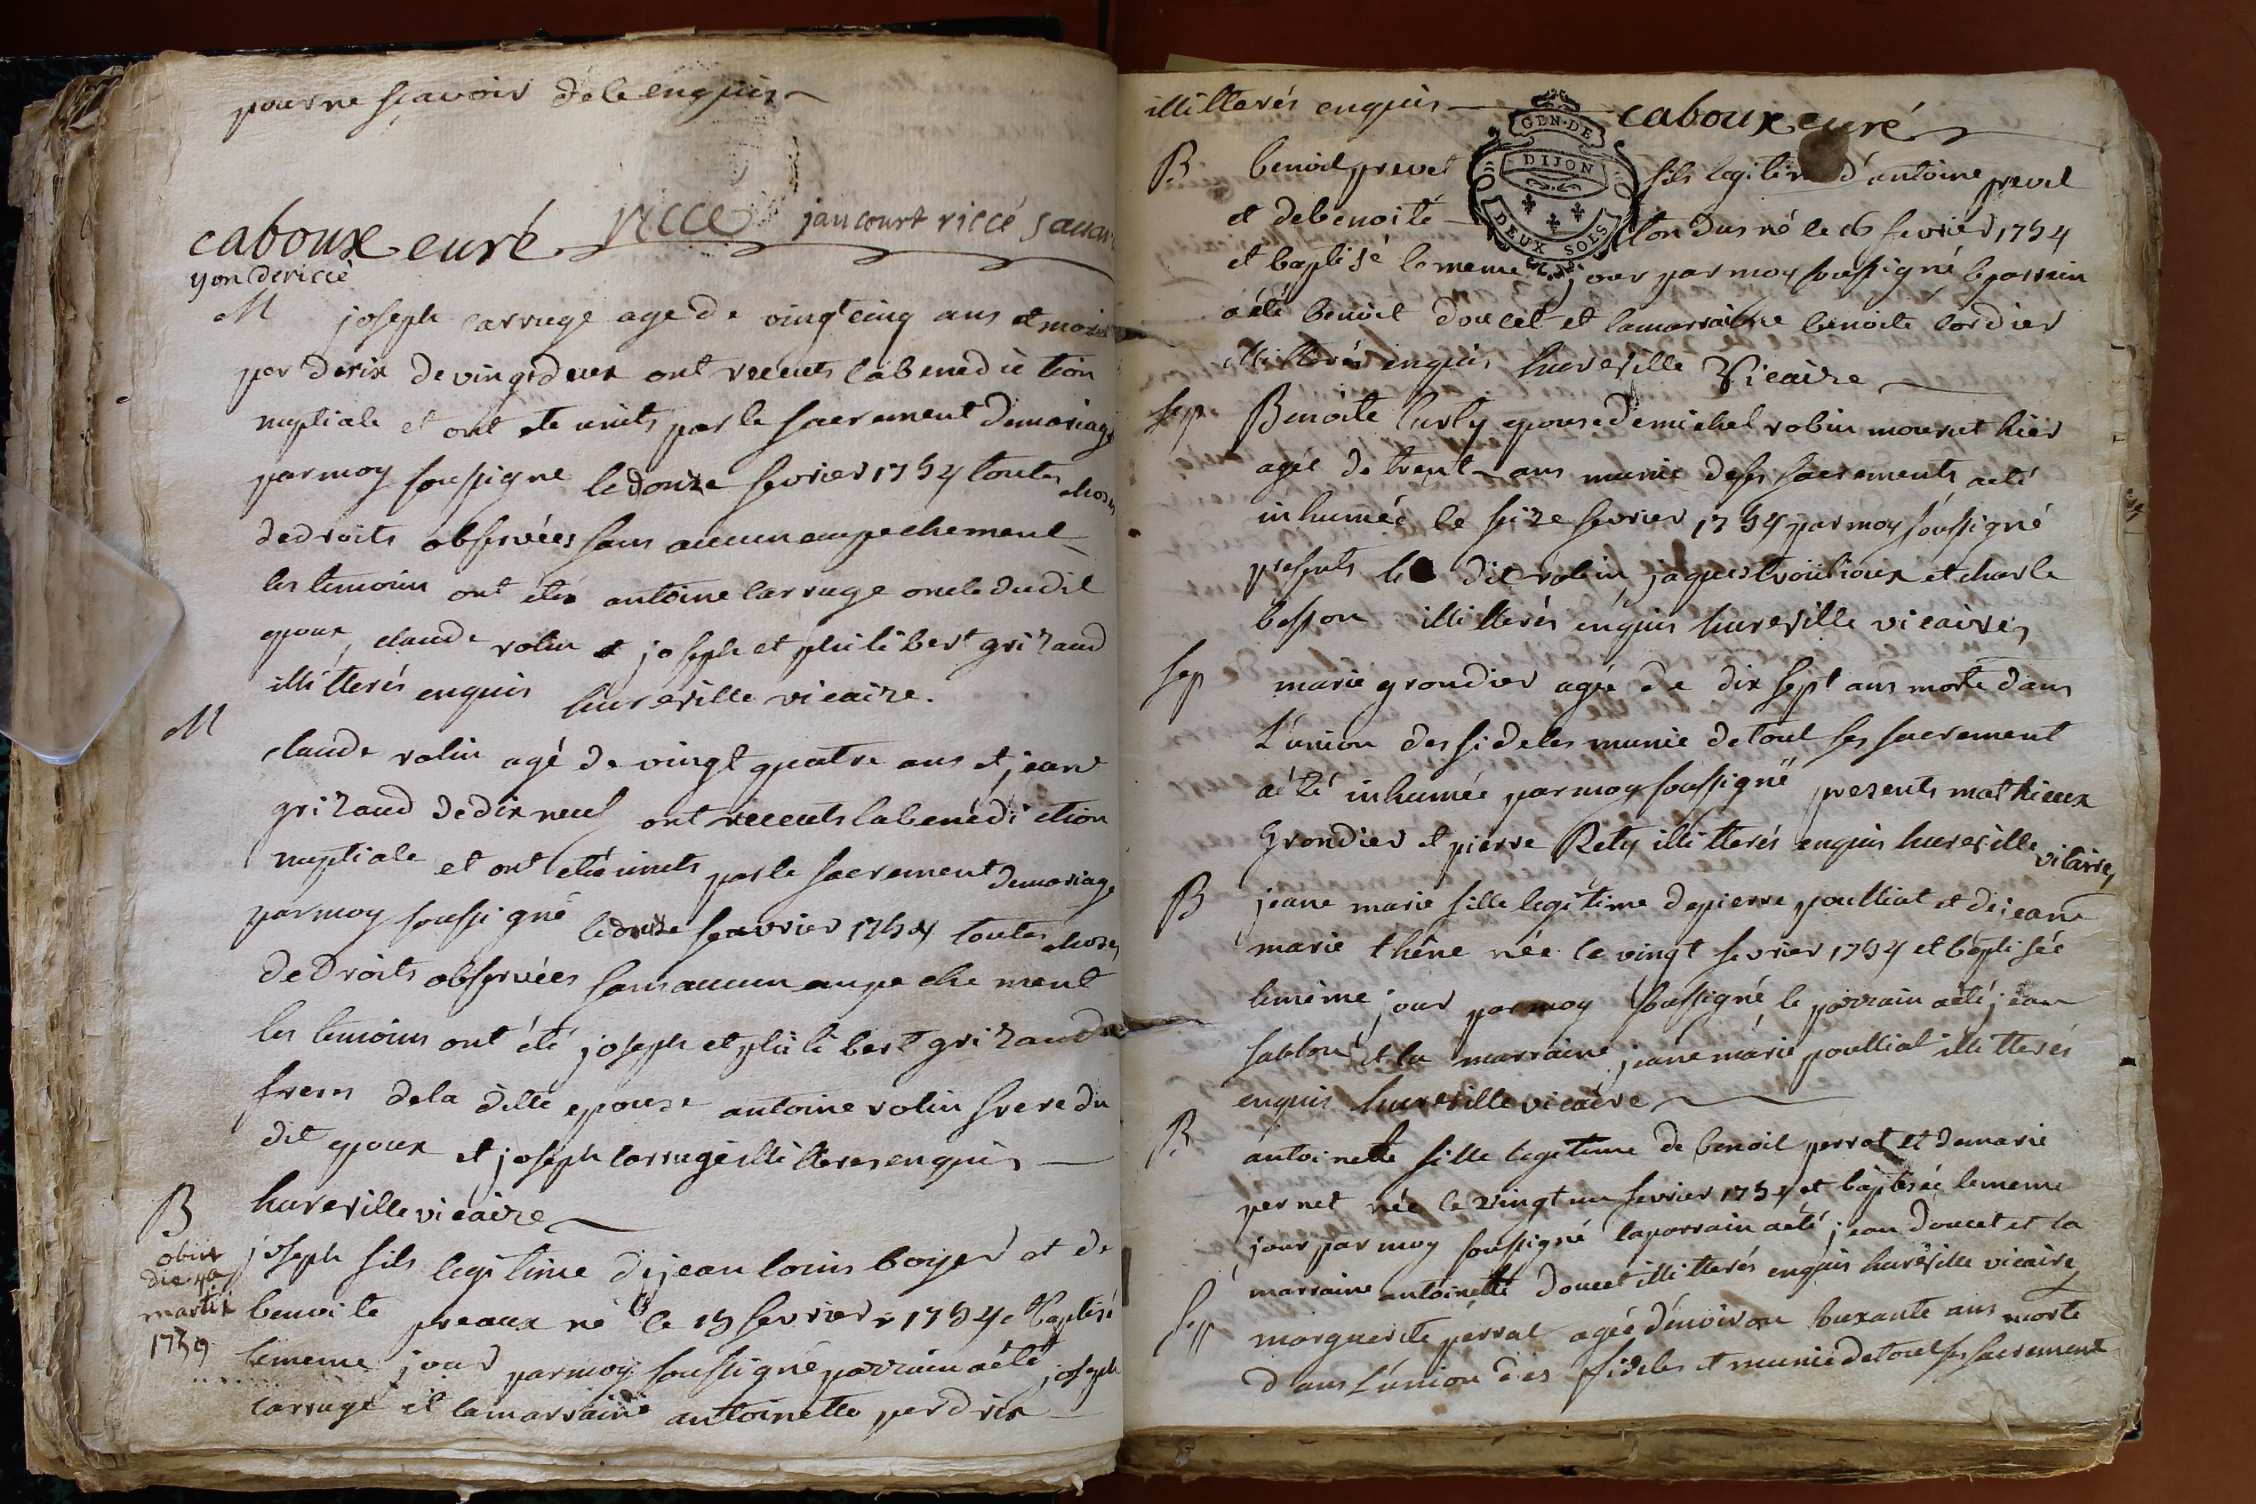 pour ne sçavoir de ce enquis
caboux curé ricce jaucourt riccé
yon dericcé
M joseph carruge age de vingt cinq ans et
perdrix de vingt deux ont receuts la benediction
nuptiale et ont ete units par le sacrement demariage
par moy soussigné le douze fevrier 1754 toutes choses
de droits observées sans aucun empechement
les temoins ont étés antoine carruge oncle dudit
epoux, claude rolin et joseph et philibert grizaud
illitterés enquis hureville vicaire.
M
claude rolin agé de vingt quatre ans et jeane
grizaud de dix neuf ont receuts la benédiction
nuptiale et ont eté units par le sacrement demariage
par moy soussigné le douze feavrier 1754 toutes choses
de droits observées sans aucun empechement
les temoins ont été joseph et philibert grizaud
freres dela ditte epouse antoine rolin frere du
dit epoux et joseph carruge illitteres enquis
B hureville vicaire
obiit
die 4a
martii
1759
joseph fils legitime de jean louis boyer et de
benoite preaux né le 15 fevrier 1754 et baptisé
lememe jour par moy soussigné parrain a été joseph
carruge et la marraine antoinette perdrix
illitterés enquis caboux curé
GEN·DE
DIJON
DEUX SOLS
B benoit prevet fils legitime d'antoine prevet
et debenoite né le 16 fevrier 1754
et baptisé lememe jour par moy soussigné leparrain
a été benoit doucet et lamarraine benoite cordier
illitterés enquis hureville Vicaire
sep Benoite curty epouse demichel robin mourut hier
agée de trente ans munie deses sacrements a eté
inhumée le seize fevrier 1754 par moy soussigné
presents le dit robin, jaques troulioux et charle
besson illitterés enquis hureville vicaire
sep marie grondier agée de dix sept ans morte dans
L'union des fideles munie de tout ses sacrement
a été inhumée par moy soussigné presents mathieux
Grondier et pierre Rety illitterés enquis hureville
vicaire
B jeane marie fille legitime depierre poulliat et de jeane
marie thêne née le vingt fevrier 1754 et baptisée
lemême jour par moy soussigné, le parrain a été jean
sablon et la marraine jeane marie poulliat illitterés
enquis hureville vicaire
B antoinette fille legitime de benoit perrat et demarie
pernet née le vingt un fevrier 1754 et baptisée lememe
jour par moy soussigné leparrain a été jean doucet et la
marraine antoinette doucet illitterés enquis hureville vicaire
sep marguerite perrat agée d'environ souxante ans morte
dans L'union des fideles et munie de tout ses sacrement